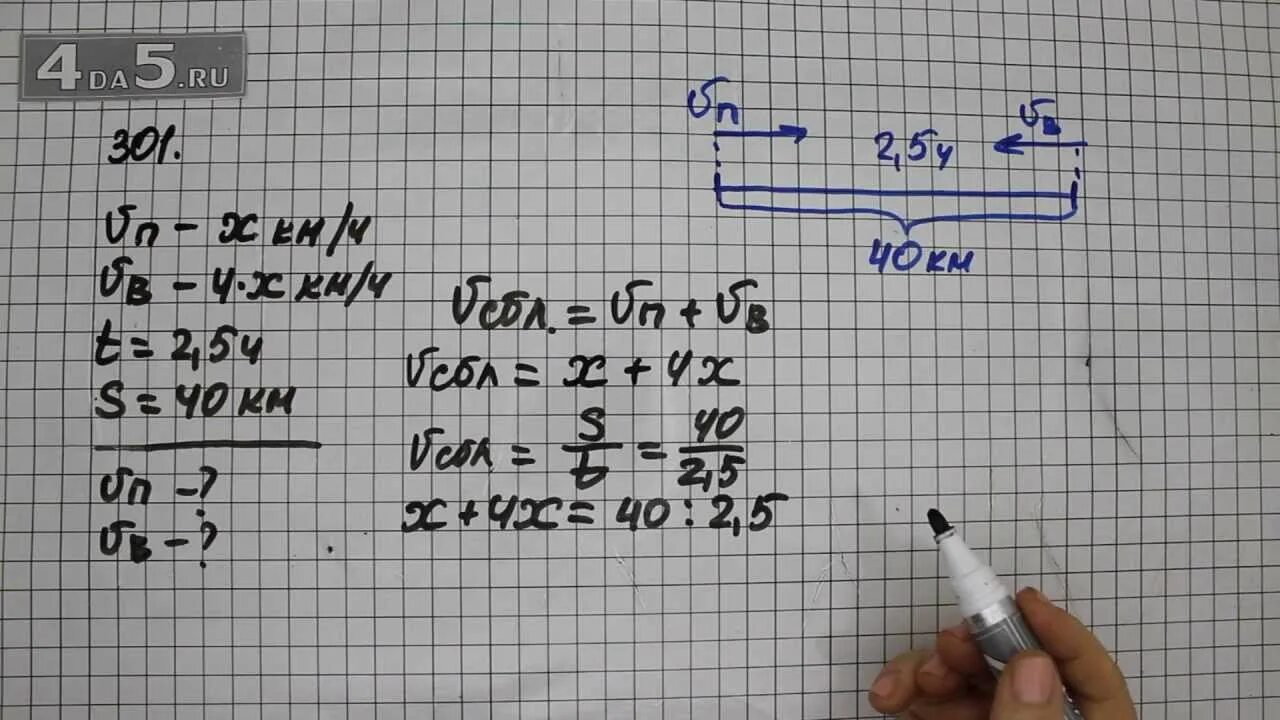 4DA5.RU
301.
υп – x км/ч
υв – 4·x км/ч
t = 2,5ч
S = 40 км
υп – ?
υв – ?
υп
2,5ч
υв
40 км
υсбл. = υп + υв
υсбл = x + 4x
υсбл = S/t = 40/2,5
x + 4x = 40 : 2,5